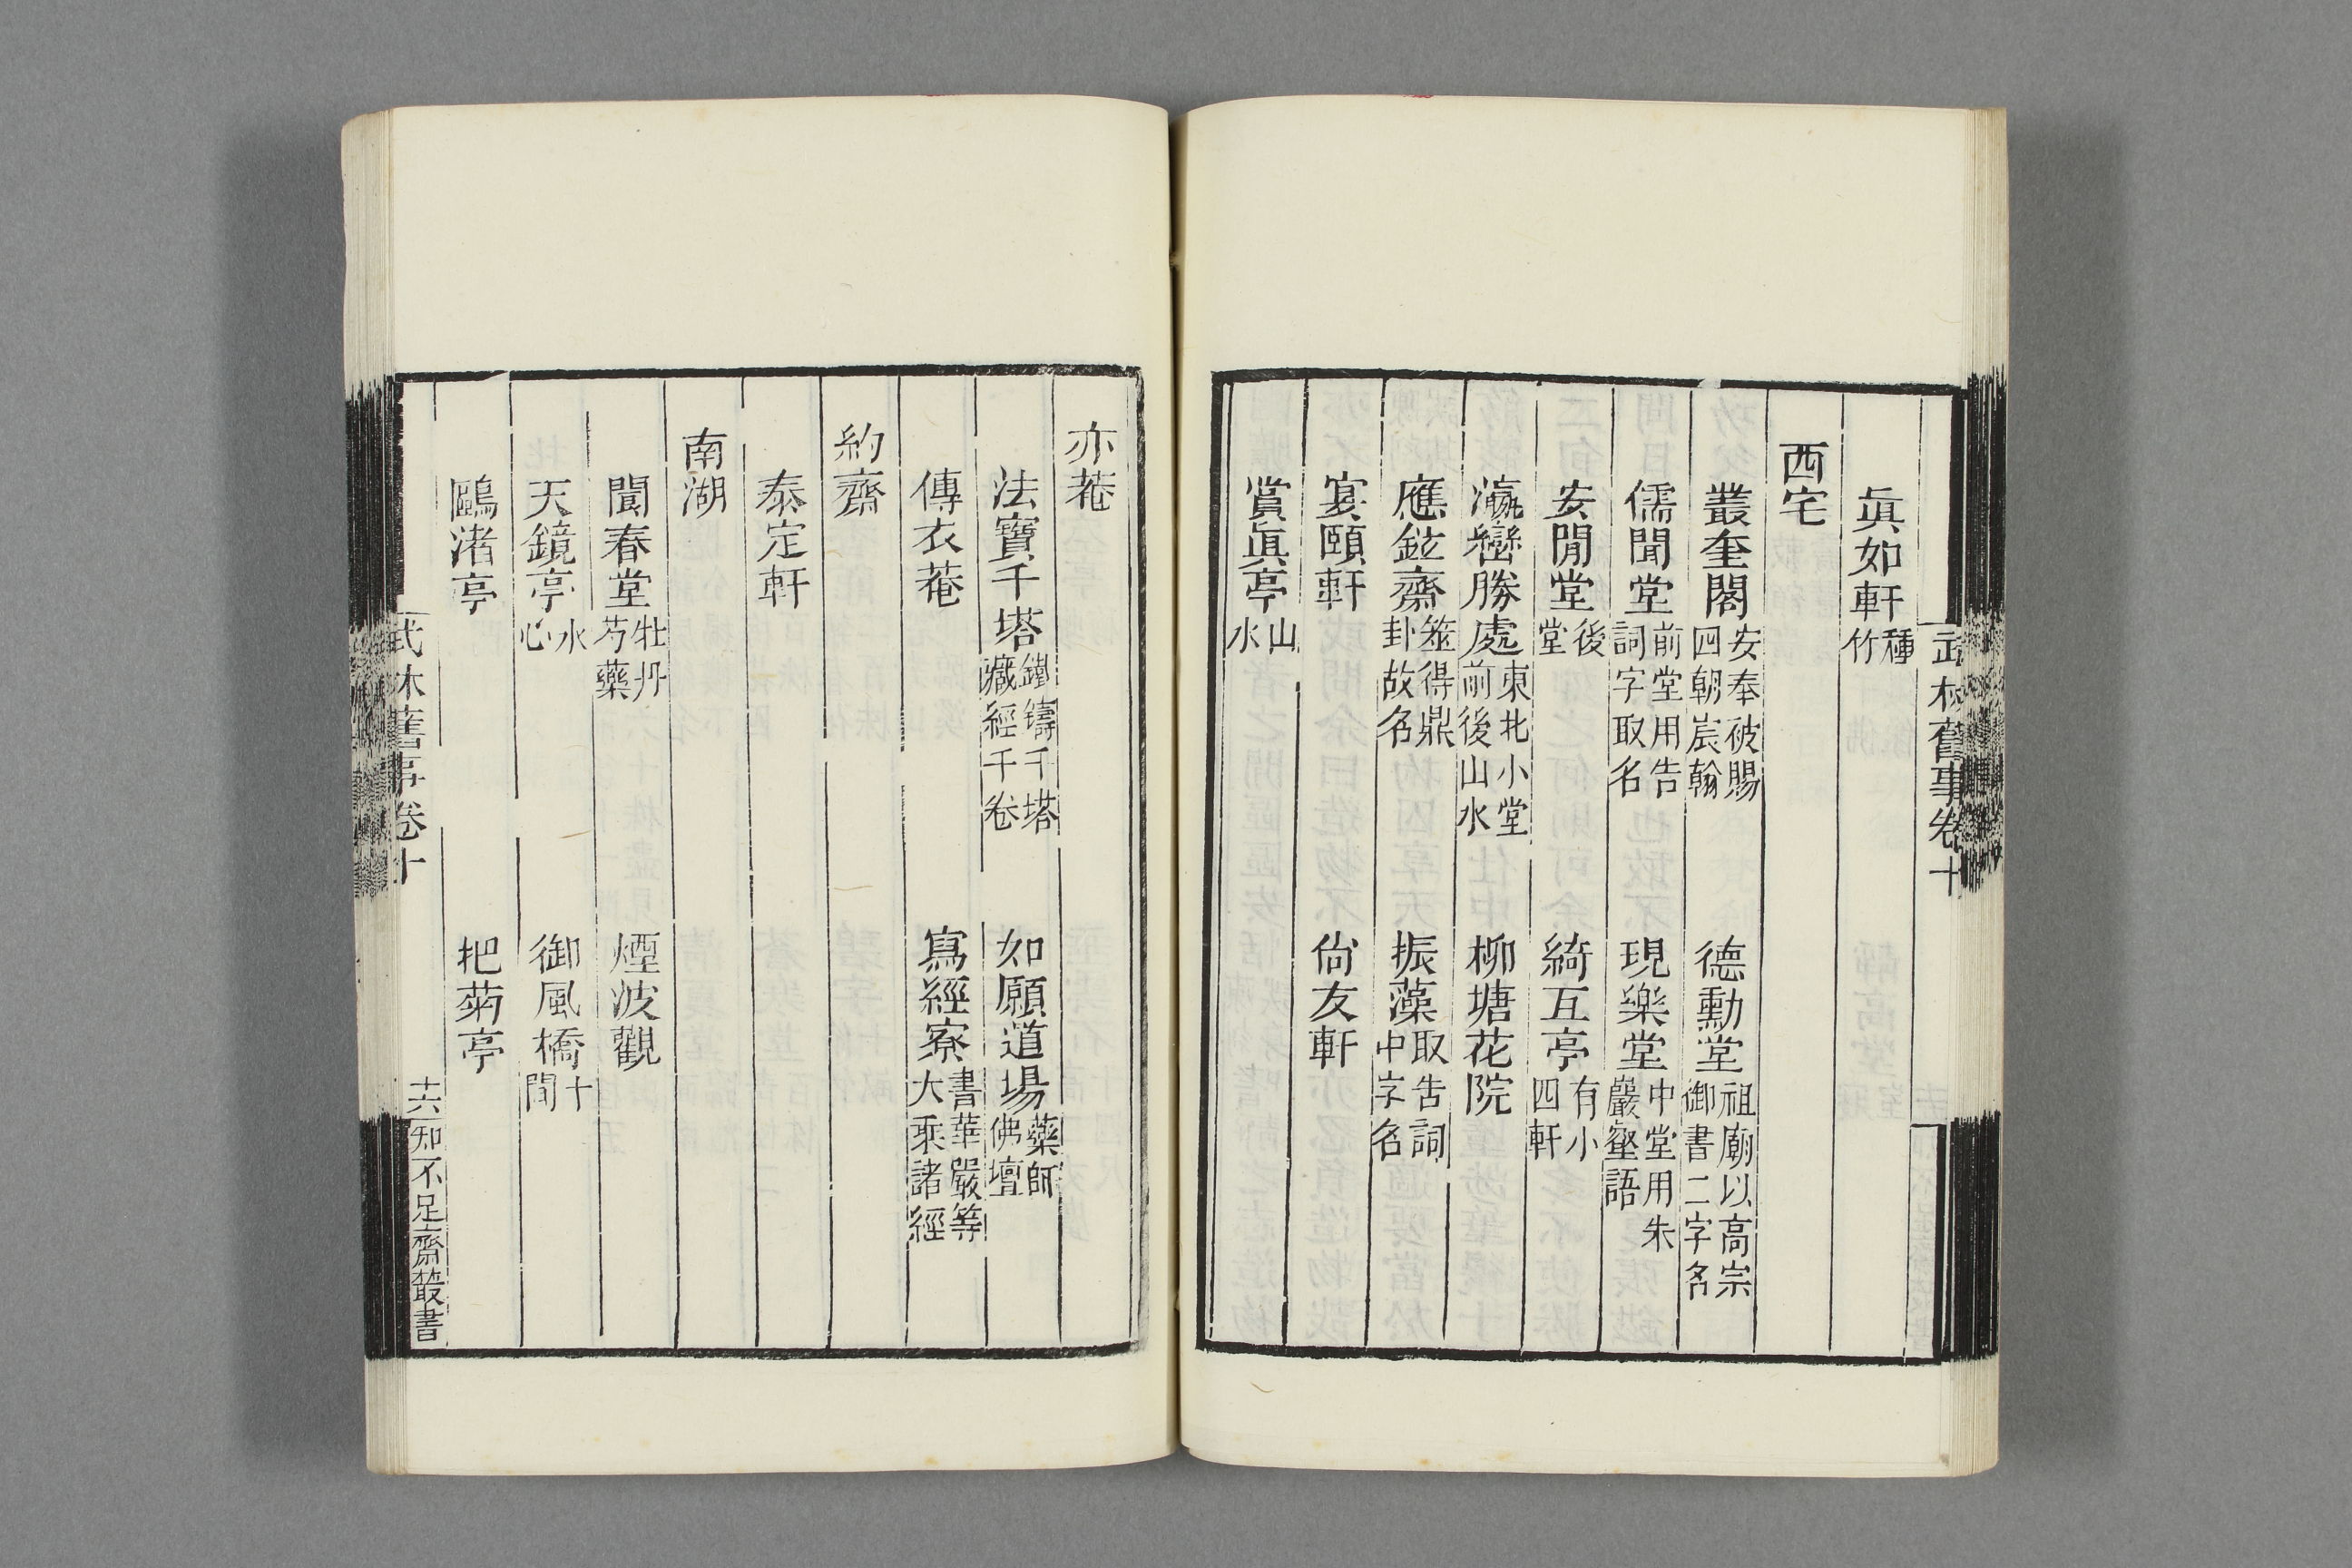 武林舊事卷十
眞如軒種竹
西宅
叢奎閣安奉被賜四朝宸翰　德勳堂祖廟以高宗御書二字名
儒聞堂前堂用告詞字取名　現樂堂中堂用朱巖壑語
安閒堂後堂　綺互亭有小四軒
瀛巒勝處東北小堂前後山水　柳塘花院
應鉉齋筮得鼎卦故名　振藻取告詞中字名
宴頤軒　尙友軒
賞眞亭山水
亦菴
法寶千塔鐵鑄千塔藏經千卷　如願道場藥師佛壇
傳衣菴　寫經寮書華嚴等大乘諸經
約齋
泰定軒
南湖
閬春堂牡丹芍藥　煙波觀
天鏡亭水心　御風橋十間
鷗渚亭　把菊亭
武林舊事卷十　十六　知不足齋叢書